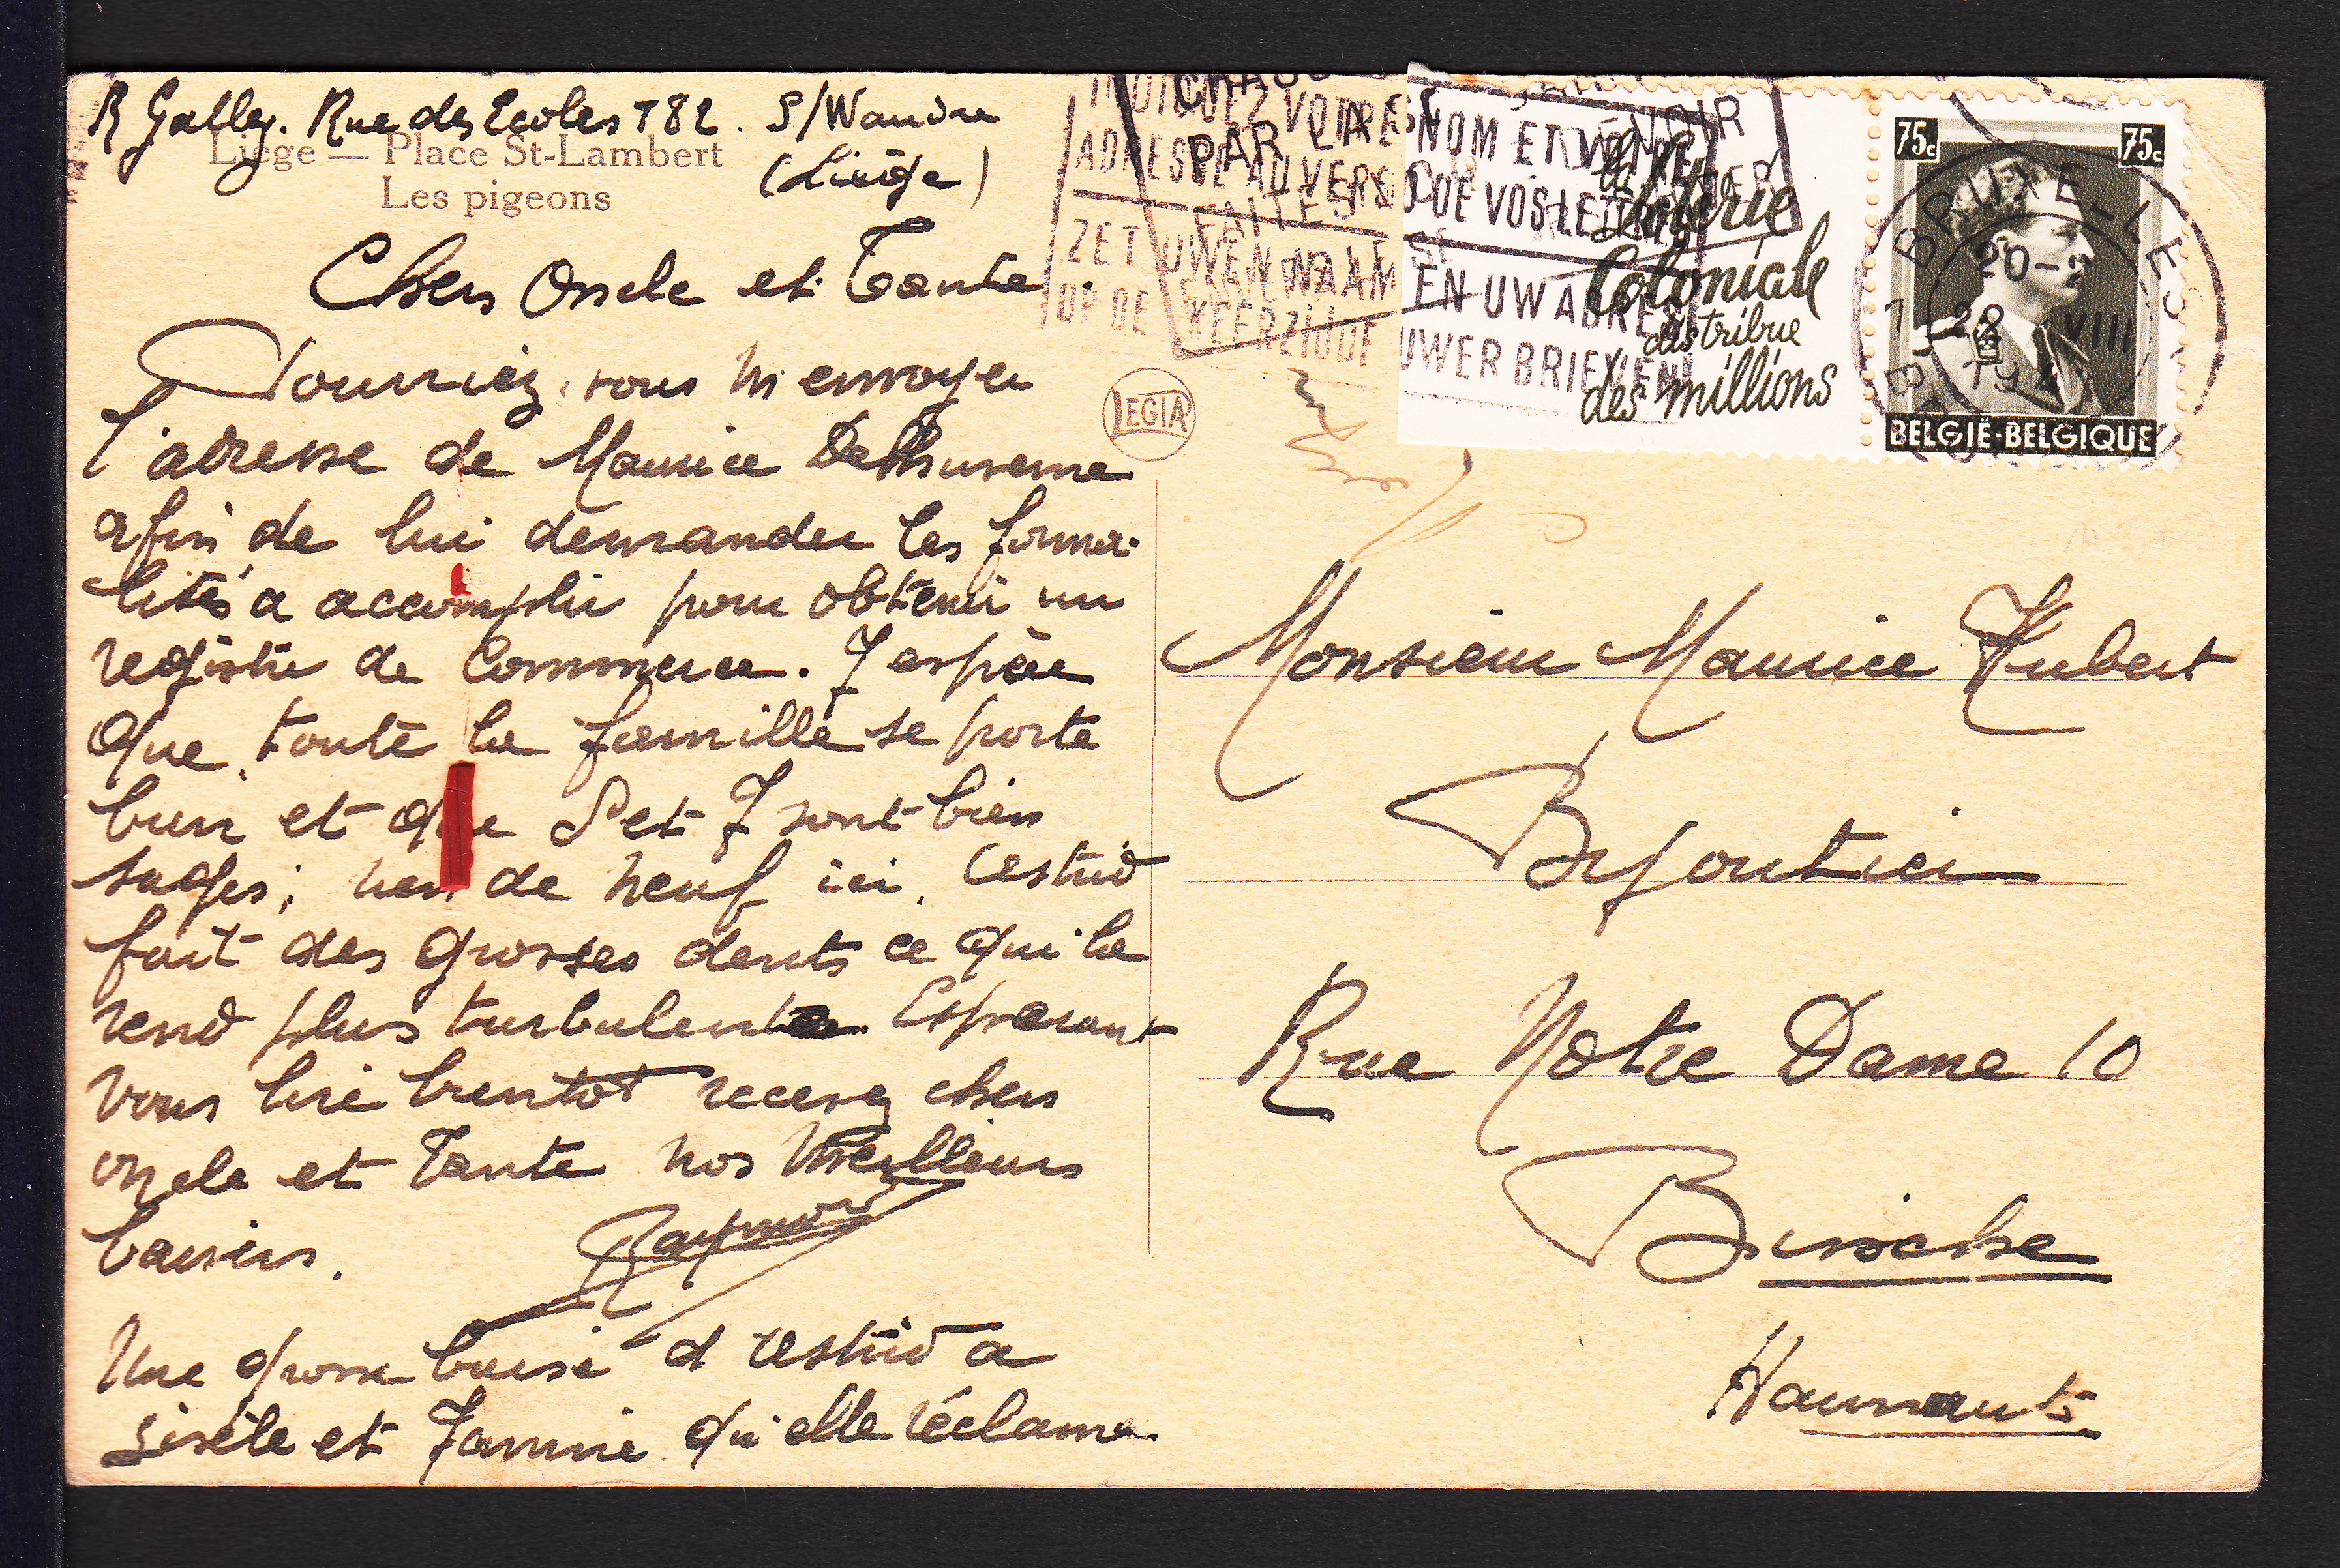 R Galley. Rue des Ecoles 782. S/Wandre
(Liège)
Liége — Place St-Lambert
Les pigeons
Chers Oncle et Tante.
Pourriez. vous m envoyer
l'adresse de Maurice
afin de lui demander les forma-
lités a accomplir pour obtenir un
registre de commerce. J espère
que toute la famille se porte
bien et que S et J sont bien
sages; rien de neuf ici. Astrid
fait des grosses dents ce qui la
rend plus turbulente. Esperant
vous lire bientot recevez chers
oncle et Tante nos Meilleurs
baisers.
Raymond
Une grosse baise d Astrid a
Gisèle et Janine qu'elle réclame.
LEGIA
INDIQUEZ VOTRE NOM ET VOTRE
ADRESSE AU VERSO DE VOS LETTRES
ZET UWEN NAAM EN UW ADRES
OP DE KEERZIJDE UWER BRIEVEN
PAR LA
FAITES
La Loterie
Coloniale
distribue
des millions
75c 75c
BRUXELLES
20-
1 28 VIII 1
194
BELGIË-BELGIQUE
Monsieur Maurice Hubert
Bijoutier
Rue Notre Dame 10
Binche
Hainaut